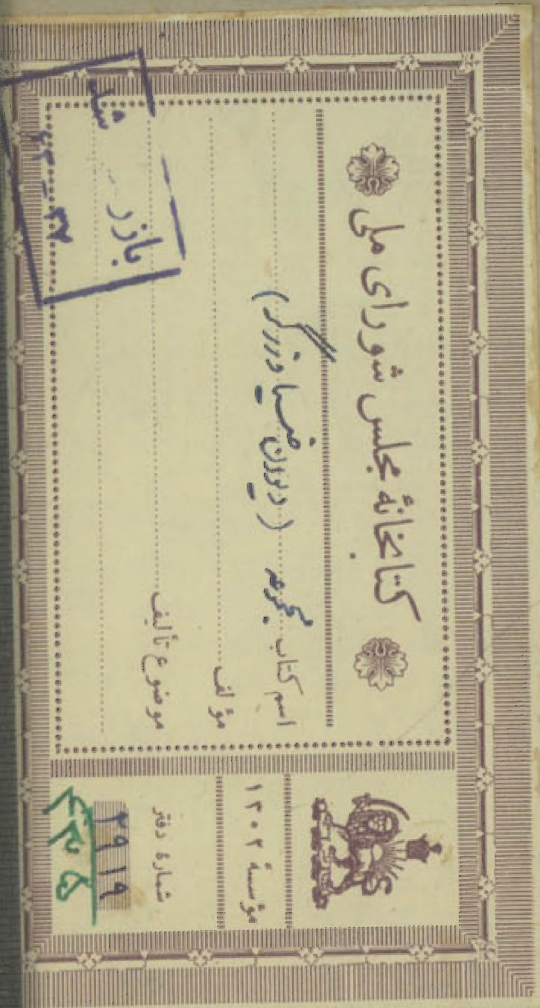 کتابخانهٔ مجلس شورای ملی
اسم کتاب مجموعه (دیوان ضیاء و زرگر)
مؤلف
موضوع تألیف
مؤسسهٔ ۱۳۰۲
شمارهٔ دفتر
۲۹۱۹
بازر شد